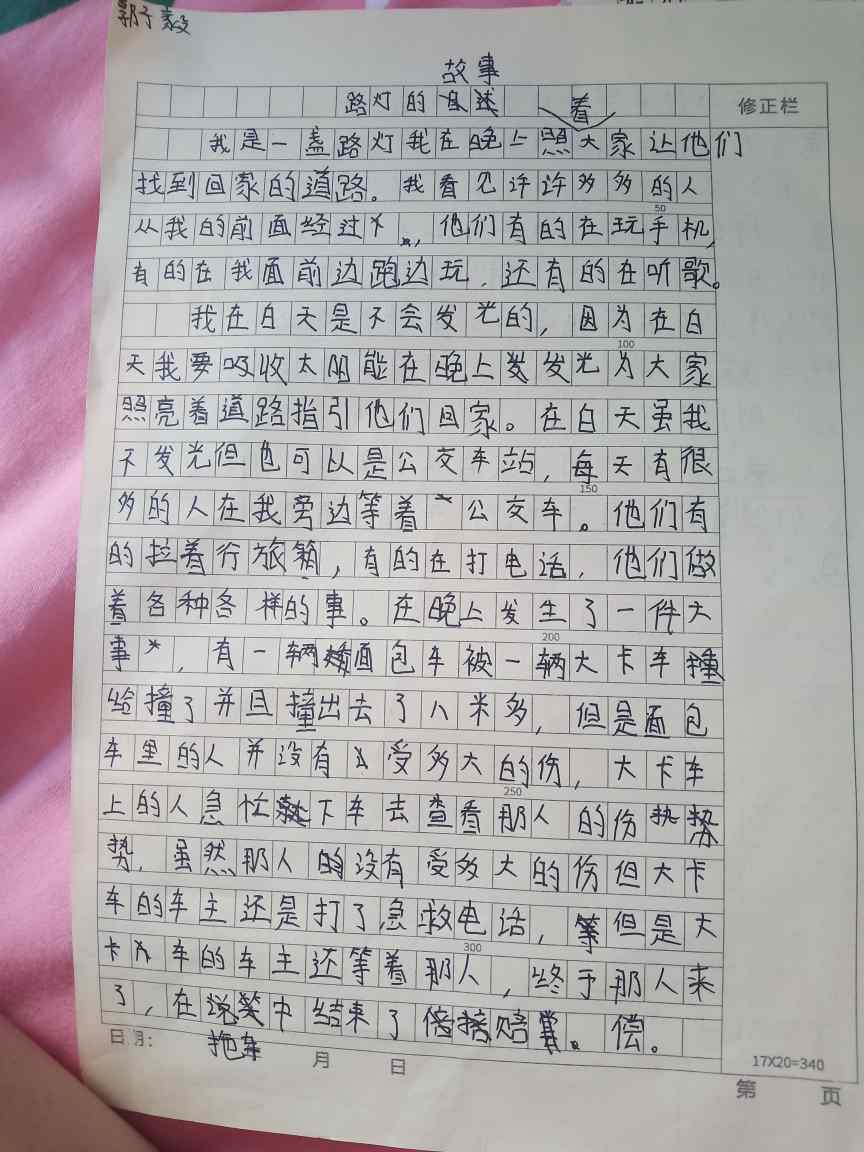 故事
路灯的
着
我是一盏路灯我在晚上照大家让他们
找到回家的道路。我看见许许多多的人
50
从我的前面经过,他们有的在玩手机,
有的在我面前边跑边玩,还有的在听歌。
我在白天是不会发光的,因为在白
100
天我要吸收太阳能在晚上发光为大家
照亮着道路指引他们回家。在白天虽我
不发光但也可以是公交车站,每天有很
150
多的人在我旁边等着公交车。他们有
的拉着行旅箱,有的在打电话,他们做
着各种各样的事。在晚上发生了一件大
200
事,有一辆面包车被一辆大卡车撞
给撞了并且撞出去了八米多,但是面包
车里的人并没有受多大的伤,大卡车
250
上的人急忙下车去查看那人的伤
势,虽然那人的没有受多大的伤但大卡
车的车主还是打了急救电话,但是大
300
卡车的车主还等着那人,终于那人来
了,在说笑中结束了赔偿。
拖车
修正栏
日期:
月
日
17X20=340
第
页